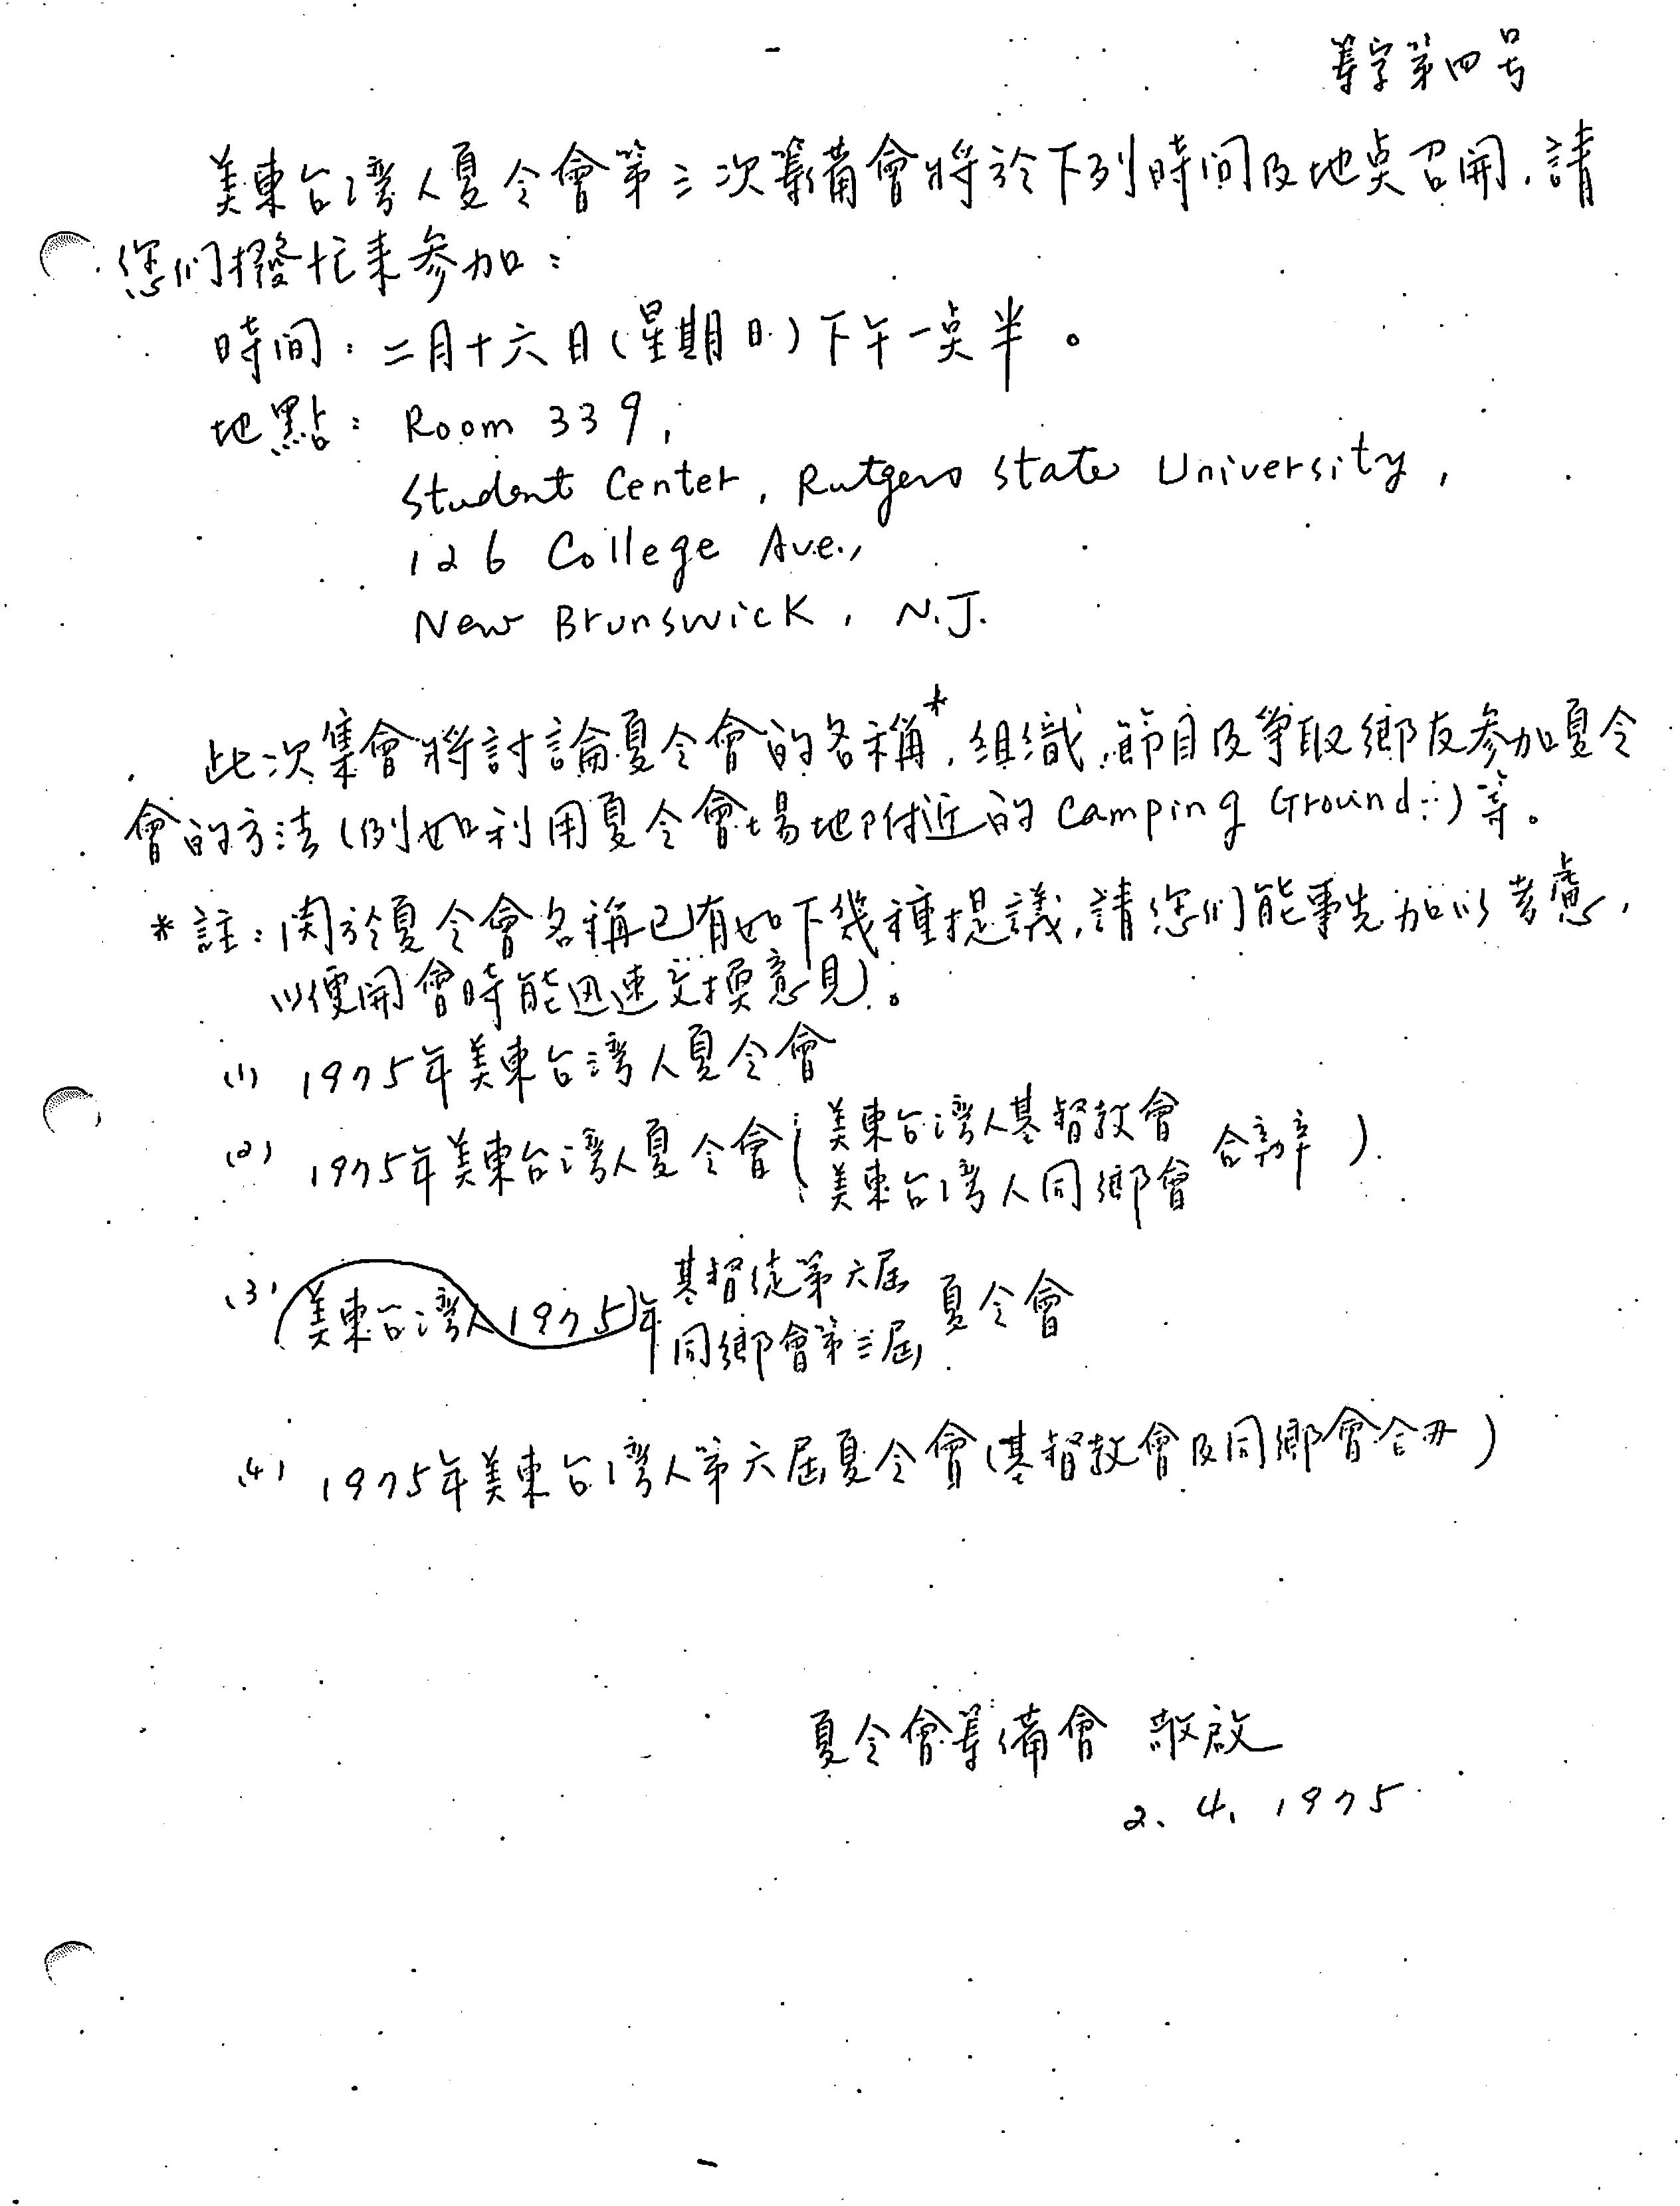 筹字第四号
美東台湾人夏令會第三次籌備會將於下列時间及地奌召開,請
您们撥忙来参加:
時间:二月十六日(星期日)下午一奌半。
地點: Room 339,
Student Center, Rutgers State University,
126 College Ave.,
New Brunswick, N.J.
此次集會將討論夏令會的名稱*,组織,節目及爭取鄉友参加夏令
會的方法(例如利用夏令會場地附近的 Camping Ground..)等。
*註:関於夏令會名稱已有如下幾種提議,請您们能事先加以考慮,
以便開會時能迅速交換意見。
(1) 1975年美東台湾人夏令會
(2) 1975年美東台湾人夏令會(美東台湾人基督教會
美東台湾人同鄉會 合辦)
(3) (美東台湾人1975)年 基督徒第六屆
同鄉會第三屆 夏令會
(4) 1975年美東台湾人第六屆夏令會(基督教會及同鄉會合办)
夏令會筹備會 敬啟
2. 4. 1975